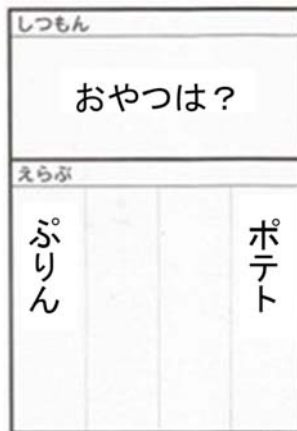 しつもん
おやつは？
えらぶ
ポテト
ぷりん